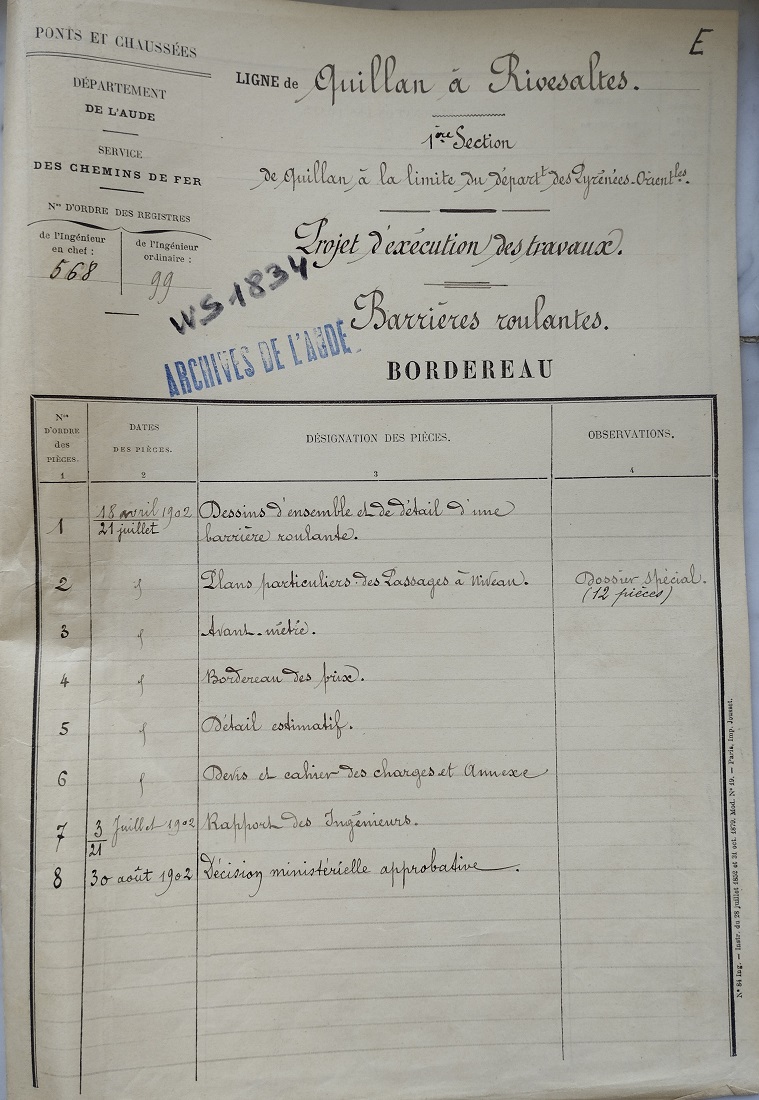 PONTS ET CHAUSSÉES
DÉPARTEMENT
DE L'AUDE
SERVICE
DES CHEMINS DE FER
Nos D'ORDRE DES REGISTRES
de l'Ingénieur en chef :
568
de l'Ingénieur ordinaire :
99
E
LIGNE de Quillan à Rivesaltes.
1ère Section
de Quillan à la limite du départt des Pyrénées-Orientles.
Projet d'exécution des travaux.
Barrières roulantes.
WS 1834
ARCHIVES DE L'AUDE
BORDEREAU
Nos D'ORDRE des PIÈCES.
DATES DES PIÈCES.
DÉSIGNATION DES PIÈCES.
OBSERVATIONS.
1 2 3 4
1 18 avril 1902 Dessins d'ensemble et de détail d'une
21 juillet barrière roulante.
2 " Plans particuliers des Passages à Niveau. Dossier spécial.
(12 pièces)
3 " Avant-métré.
4 " Bordereau des prix.
5 " Détail estimatif.
6 " Devis et cahier des charges et Annexe
7 3/21 Juillet 1902 Rapport des Ingénieurs.
8 30 août 1902 Décision ministérielle approbative.
N° 84 Ing. — Instr. du 28 juillet 1852 et 31 oct. 1879. Mod. N° 19. — Paris, Imp. Jousset.